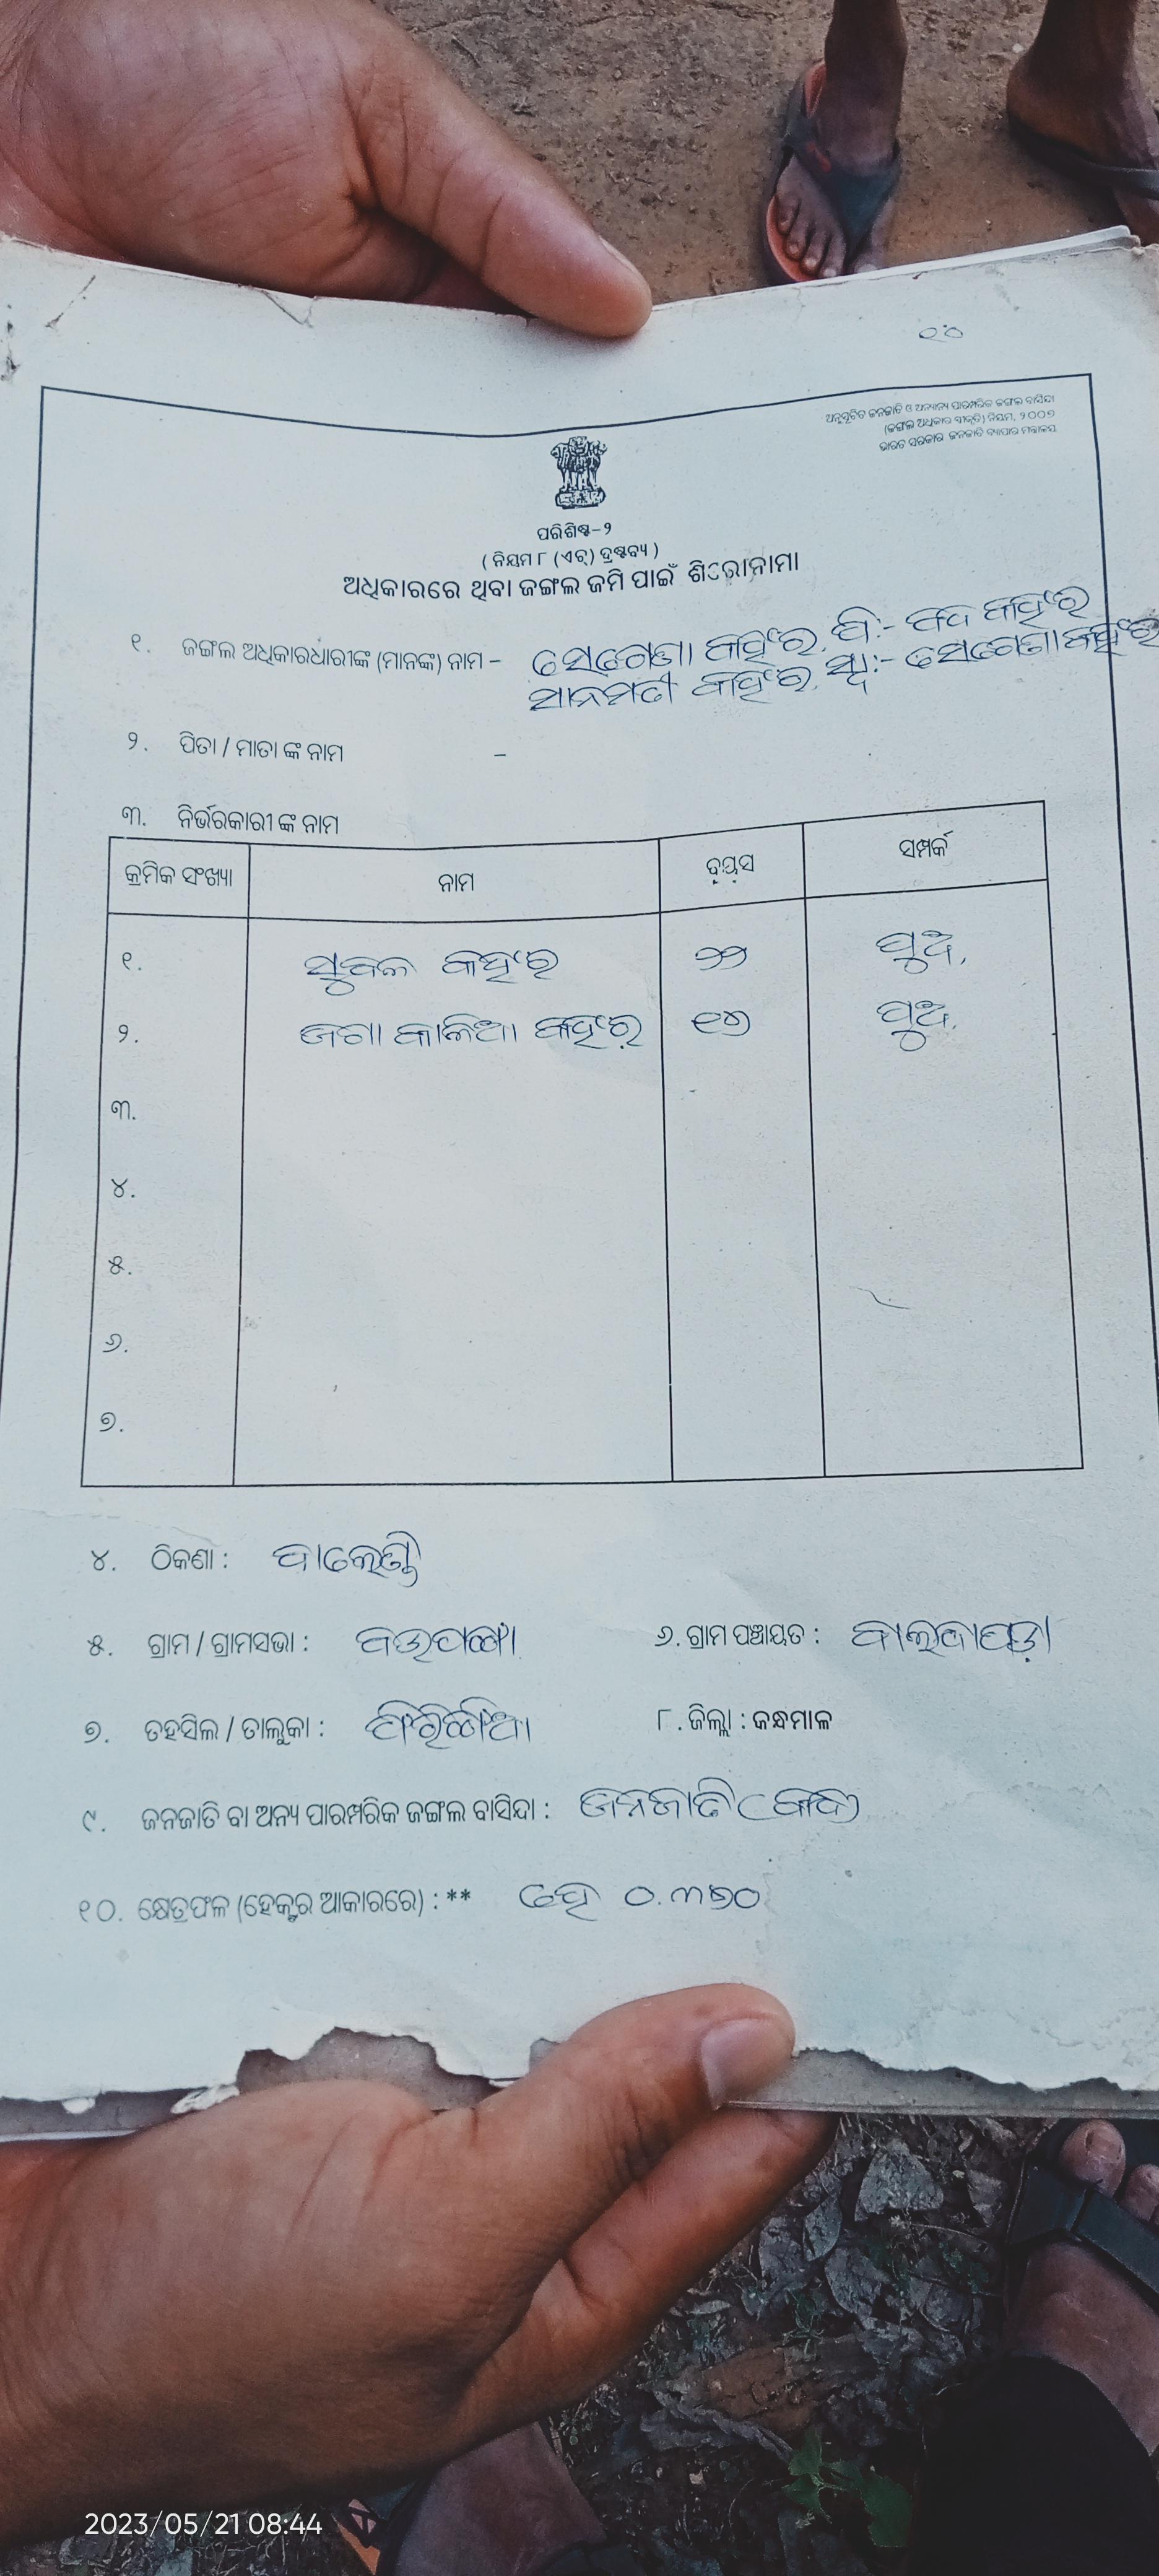 ୧୦
ଅନୁସୂଚିତ ଜନଜାତି ଓ ଅନ୍ୟାନ୍ୟ ପାରମ୍ପରିକ ଜଙ୍ଗଲ ବାସିନ୍ଦା
(ଜଙ୍ଗଲ ଅଧିକାର ସ୍ବୀକୃତି) ନିୟମ, ୨୦୦୭
ଭାରତ ସରକାର ଜନଜାତି ବ୍ୟାପାର ମନ୍ତ୍ରାଳୟ
ପରିଶିଷ୍ଟ-୨
( ନିୟମ ୮ (ଏଚ୍) ଦ୍ରଷ୍ଟବ୍ୟ )
ଅଧିକାରରେ ଥିବା ଜଙ୍ଗଲ ଜମି ପାଇଁ ଶିରୋନାମା
୧. ଜଙ୍ଗଲ ଅଧିକାରଧାରୀଙ୍କ (ମାନଙ୍କ) ନାମ - କହଁର ପି:- କହଁର
ସାନମତୀ କହଁର, ସ୍ବା:- କହଁର
୨. ପିତା / ମାତା ଙ୍କ ନାମ -
୩. ନିର୍ଭରକାରୀ ଙ୍କ ନାମ
କ୍ରମିକ ସଂଖ୍ୟା ନାମ ବୟସ ସମ୍ପର୍କ
୧. ସୁବଳ କହଁର ୨୨ ପୁଅ,
୨. ଜଗା କାଳିଆ କହଁର ୧୪ ପୁଅ,
୩.
୪.
୫.
୬.
୭.
୪. ଠିକଣା :
୫. ଗ୍ରାମ / ଗ୍ରାମସଭା : ୬. ଗ୍ରାମ ପଞ୍ଚାୟତ :
୭. ତହସିଲ / ତାଲୁକା : ଫିରିଙ୍ଗିଆ ୮. ଜିଲ୍ଲା : କନ୍ଧମାଳ
୯. ଜନଜାତି ବା ଅନ୍ୟ ପାରମ୍ପରିକ ଜଙ୍ଗଲ ବାସିନ୍ଦା : ଜନଜାତି (କନ୍ଧ)
୧୦. କ୍ଷେତ୍ରଫଳ (ହେକ୍ଟର ଆକାରରେ) : ** ହେ
2023/05/21 08:44